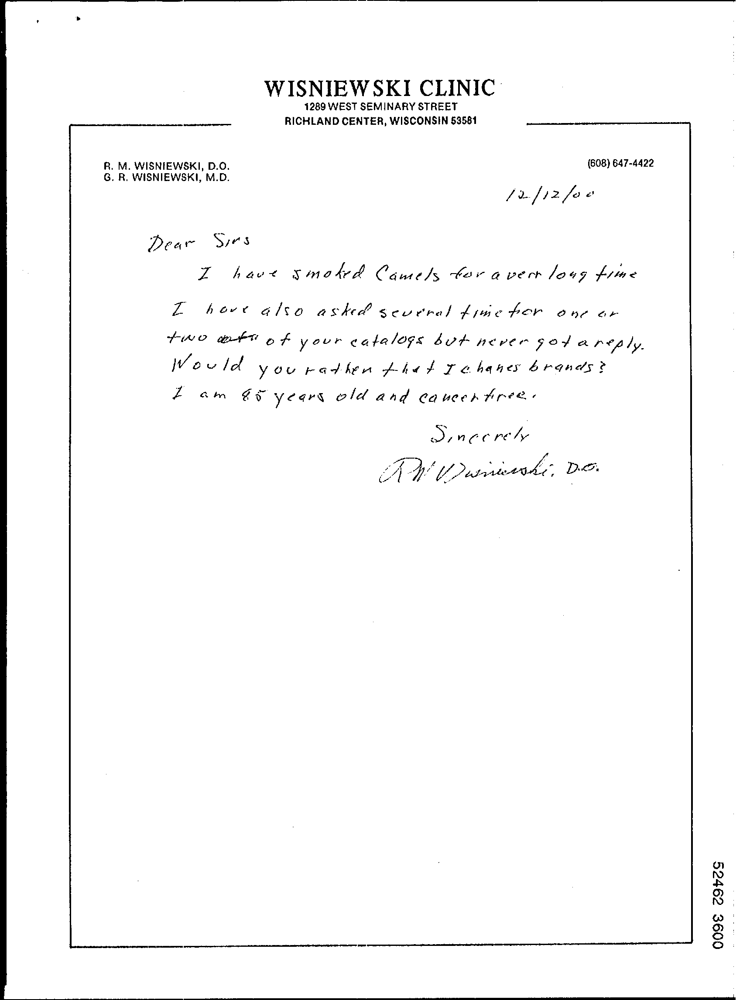 WISNIEWSKI CLINIC
1289 WEST SEMINARY STREET
RICHLAND CENTER, WISCONSIN 53581
R. M. WISNIEWSKI, D.O.
G. R. WISNIEWSKI, M.D.
(608) 647-4422
12/12/00
Dear Sirs
I have smoked Camels for a very long time
I have also asked several time for one or
two of your catalogs but never got a reply.
Would you rather that I change brands?
I am 85 years old and cancer free.
Sincerely
RM Wisniewski, D.O.
52462 3600